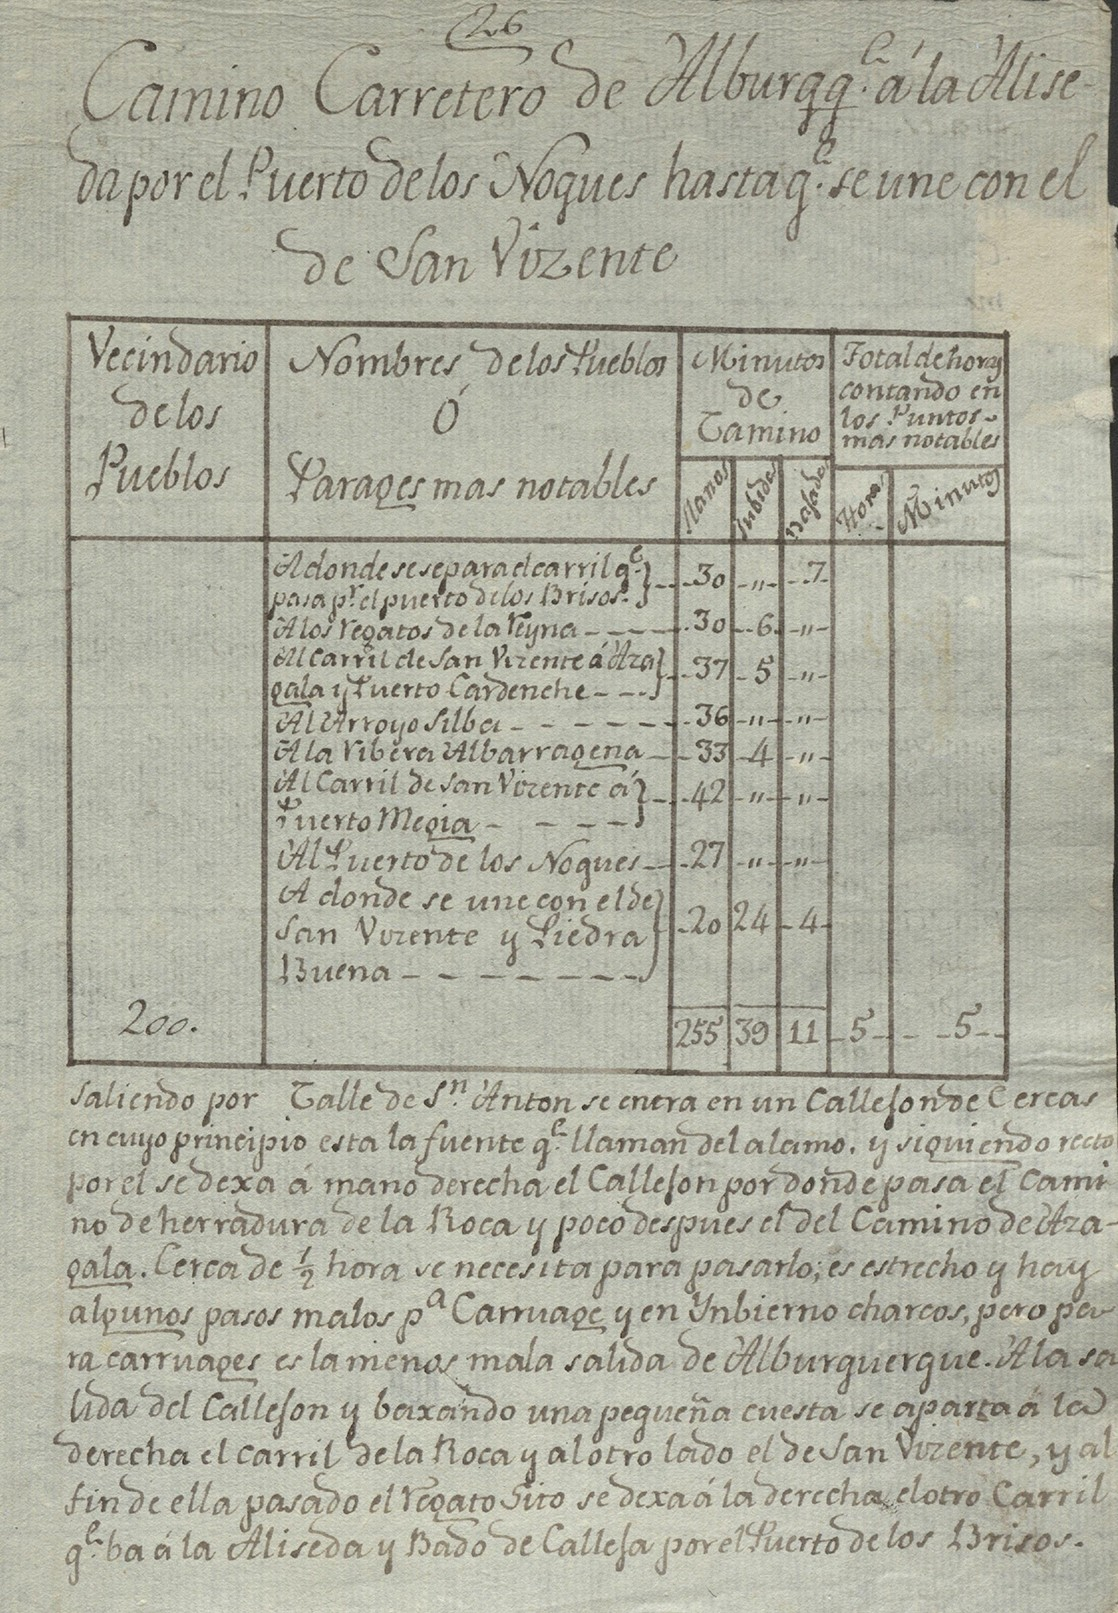 26
Camino Carretero de Alburqq.e á la Alise-
da por el Puerto de los Nogues hasta q.e se une con el
de San Vizente
Vecindario de los Pueblos
Nombres de los Pueblos
Ó
Parages mas notables
Minutos de Camino
Total de horas contando en los Puntos mas notables
llanos
subidas
bajadas
Horas
Minutos
A donde se separa el carril q.e } 30 " 7
pasa p.r el puerto de los Brisos.
A los Regatos de la Reyna 30 6 "
Al Carril de San Vizente á Aza } 37 5 "
gala y Puerto Cardenche
Al Arroyo Silba 36 " "
A la Ribera Albarragena 33 4 "
Al Carril de San Vizente á } 42 " "
Puerto Megia
Al Puerto de los Nogues 27 " "
A donde se une con el de } 20 24 4
San Vizente y Piedra
Buena
200. 255 39 11 5 5
Saliendo por Calle de S.n Anton se entra en un Calleson de Cercas
en cuyo principio esta la fuente q.e llaman del alamo. y siguiendo recto
por el se dexa á mano derecha el Calleson por donde pasa el Cami
no de herradura de la Roca y poco despues el del Camino de Aza-
gala. Cerca de 1/2 hora se necesita para pasarlo; es estrecho y hay
algunos pasos malos p.a Carruage y en Ynbierno charcos, pero pa-
ra carruages es la menos mala salida de Alburguergue. A la sa
lida del Calleson y baxando una pequeña cuesta se aparta á la
derecha el carril de la Roca y al otro lado el de San Vizente, y al
fin de ella pasado el Regato Sito se dexa á la derecha el otro Carril
q.e ba á la Aliseda y Bado de Callesa por el Puerto de los Brisos.